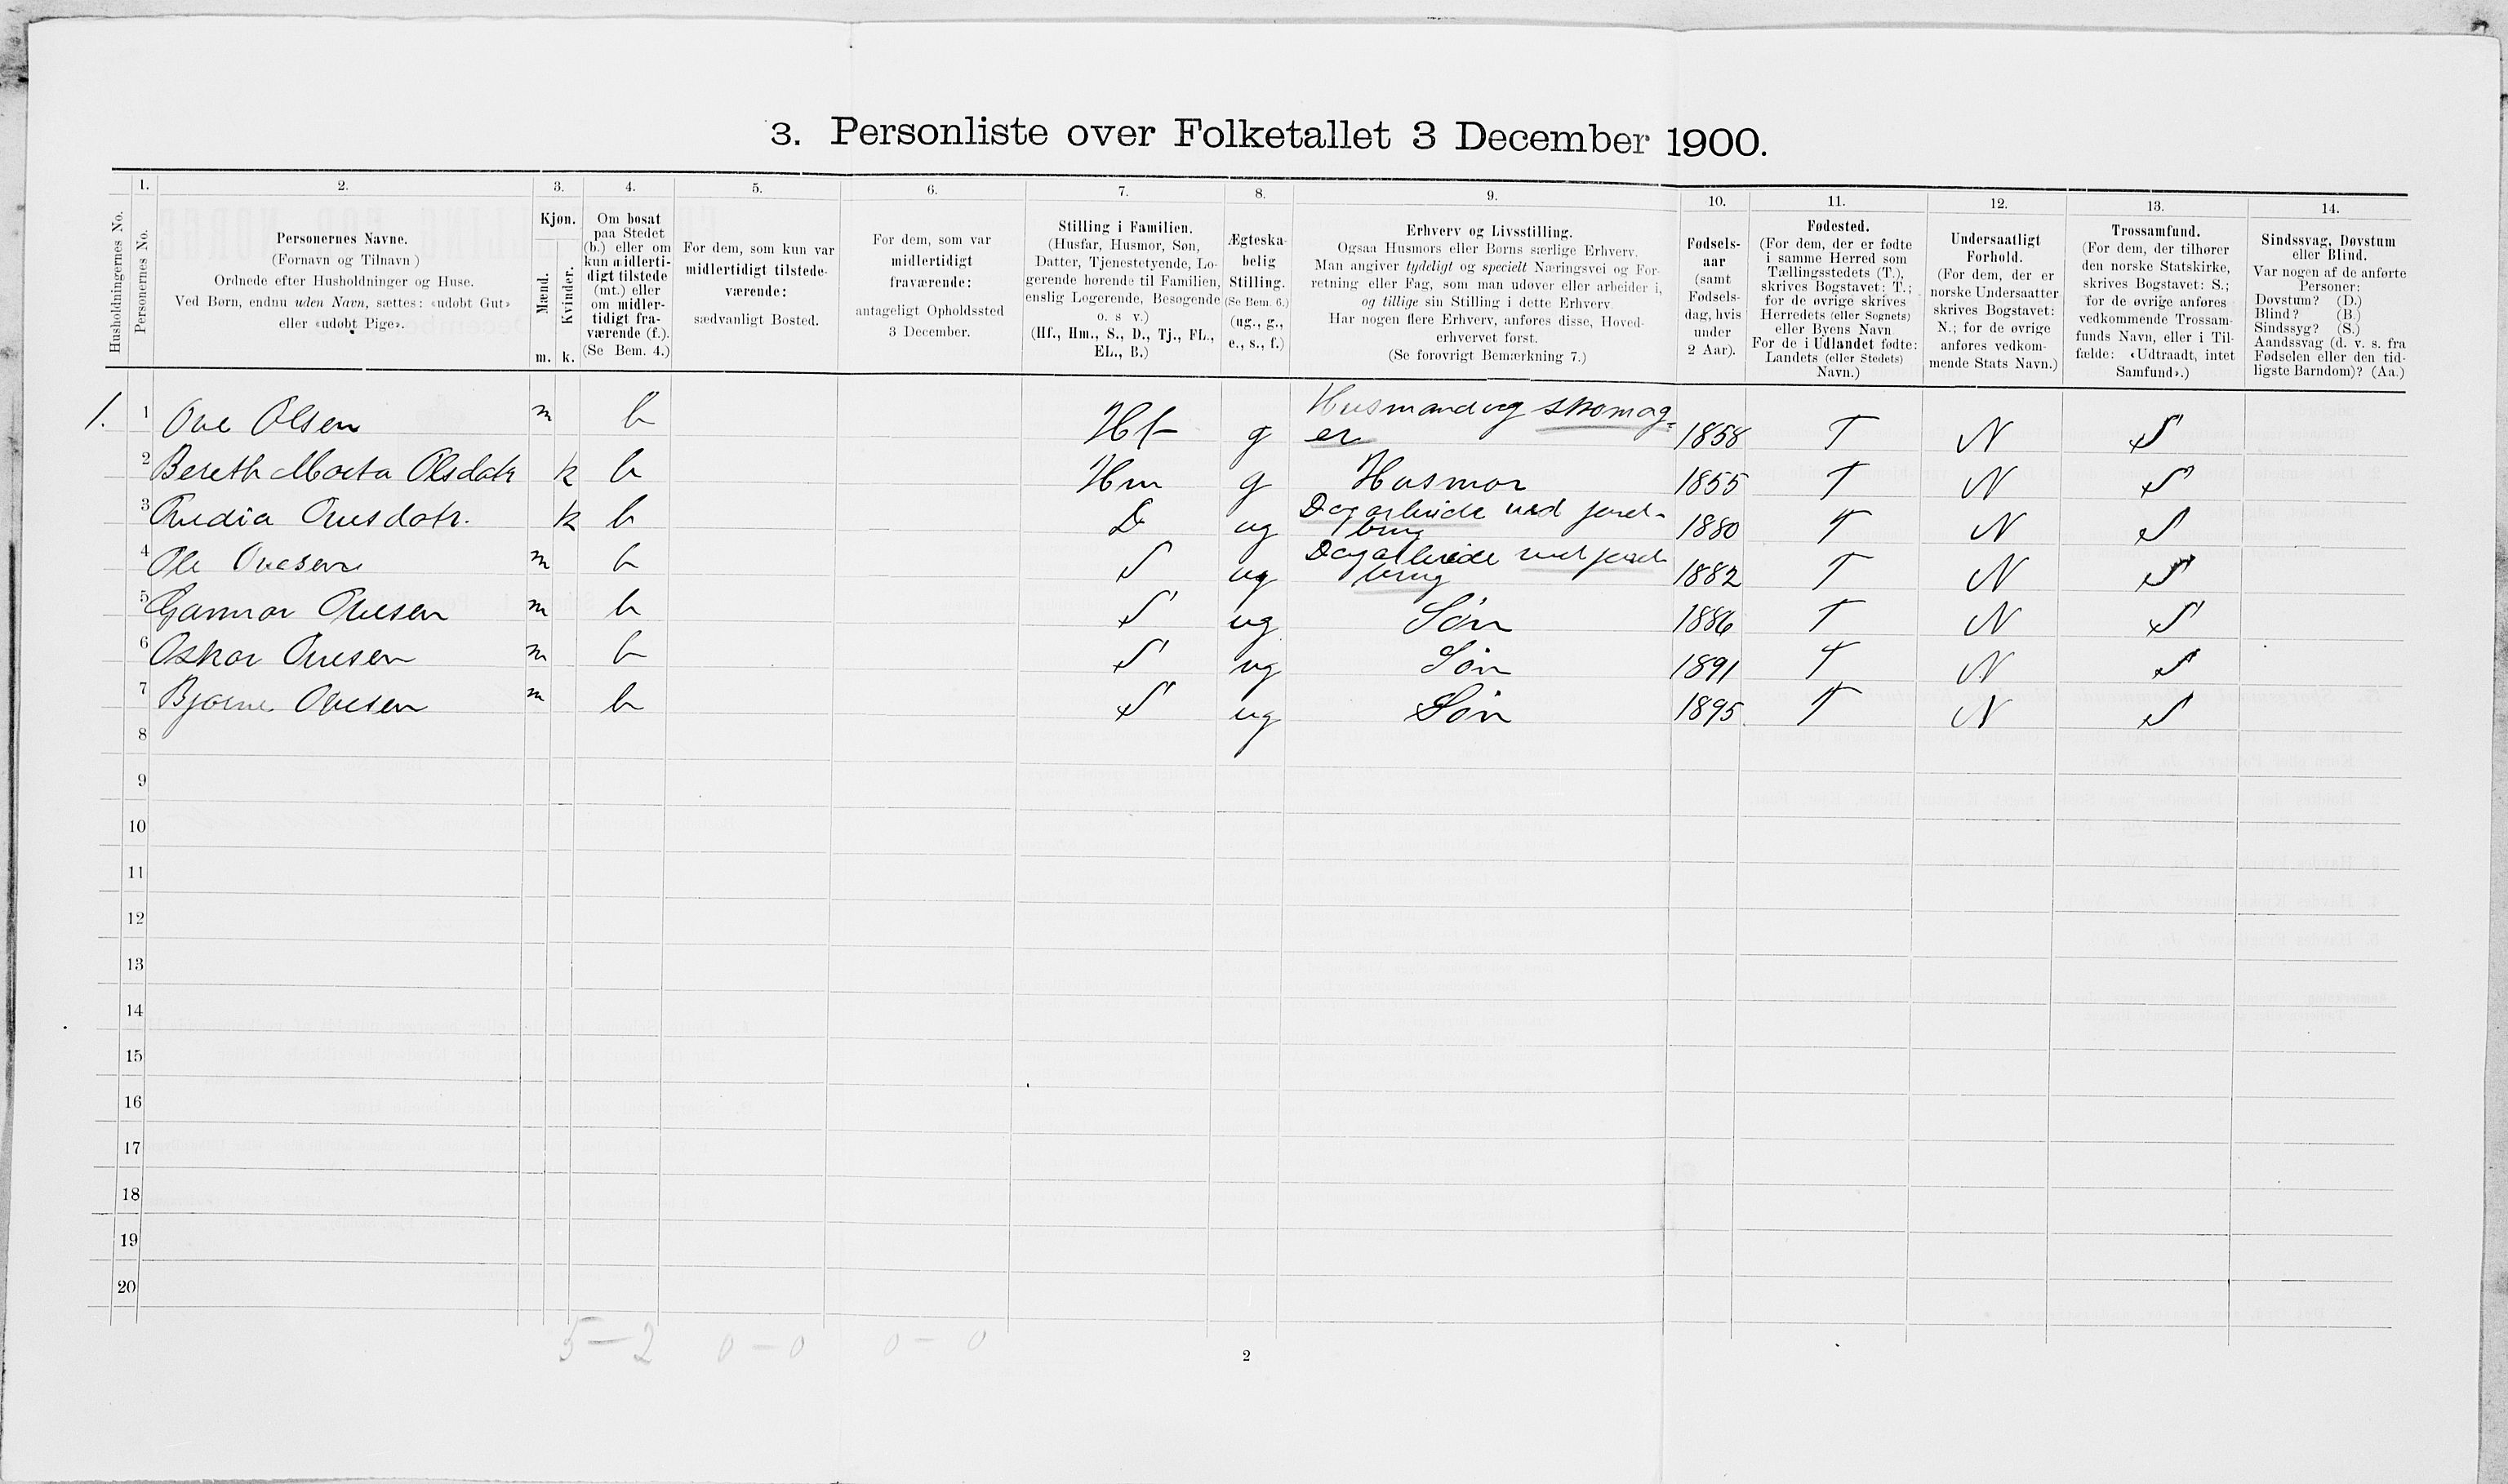 3. Personliste over Folketallet 3 December 1900.
1. 2. 3. 4. 5. 6. 7. 8. 9. 10. 11. 12. 13. 14.
Husholdningernes No.
Personernes No.
Personernes Navne.
(Fornavn og Tilnavn)
Ordnede efter Husholdninger og Huse.
Ved Børn, endnu uden Navn, sættes: «udøbt Gut»
eller «udøbt Pige».
Kjøn.
Mænd.
Kvinder.
m. k.
Om bosat
paa Stedet
(b.) eller om
kun midlerti-
digt tilstede
(mt.) eller
om midler-
tidigt fra-
værende (f.).
(Se Bem. 4.)
For dem, som kun var
midlertidigt tilstede-
værende:
sædvanligt Bosted.
For dem, som var
midlertidigt
fraværende:
antageligt Opholdssted
3 December.
Stilling i Familien.
(Husfar, Husmor, Søn,
Datter, Tjenestetyende, Lo-
gerende hørende til Familien,
enslig Logerende, Besøgende
o. s v.)
(Hf., Hm., S., D., Tj., FL.,
EL., B.)
Ægteska-
belig
Stilling.
(Se Bem. 6.)
(ug., g.,
e., s., f.)
Erhverv og Livsstilling.
Ogsaa Husmors eller Børns særlige Erhverv.
Man angiver tydeligt og specielt Næringsvei og For-
retning eller Fag, som man udøver eller arbeider i,
og tillige sin Stilling i dette Erhverv.
Har nogen flere Erhverv, anføres disse, Hoved-
erhvervet først.
(Se forøvrigt Bemærkning 7.)
Fødsels-
aar
(samt
Fødsels-
dag, hvis
under
2 Aar).
Fødested.
(For dem, der er fødte
i samme Herred som
Tællingsstedets (T.),
skrives Bogstavet: T.;
for de øvrige skrives
Herredets (eller Sognets)
eller Byens Navn
For de i Udlandet fødte:
Landets (eller Stedets)
Navn.)
Undersaatligt
Forhold.
(For dem, der er
norske Undersaatter
skrives Bogstavet:
N.; for de øvrige
anføres vedkom-
mende Stats Navn.)
Trossamfund.
(For dem, der tilhører
den norske Statskirke,
skrives Bogstavet: S.;
for de øvrige anføres
vedkommende Trossam-
funds Navn, eller i Til-
fælde: «Udtraadt, intet
Samfund».)
Sindssvag, Døvstum
eller Blind.
Var nogen af de anførte
Personer:
Døvstum? (D.)
Blind? (B.)
Sindssyg? (S.)
Aandssvag (d. v. s. fra
Fødselen eller den tid-
ligste Barndom)? (Aa.)
1. 1 Ove Olsen m b Hf g Husmand og skomag-
er 1858 T N S
2 Bereth Marta Olsdatr k b Hm g Husmor 1855 T N S
3 Ovesdatr. k b D ug Dagarbeide ved jord-
brug 1880 T N S
4 Ole Ovesen m b S ug Dagarbeide ved jord-
brug 1882 T N S
5 Gunnar Ovesen m b S ug Søn 1886 T N S
6 Oskar Ovesen m b S ug Søn 1891 T N S
7 Bjarne Ovesen m b S ug Søn 1895 T N S
8
9
10
11
12
13
14
15
16
17
18
19
20
5 - 2 0 - 0 0 - 0
2